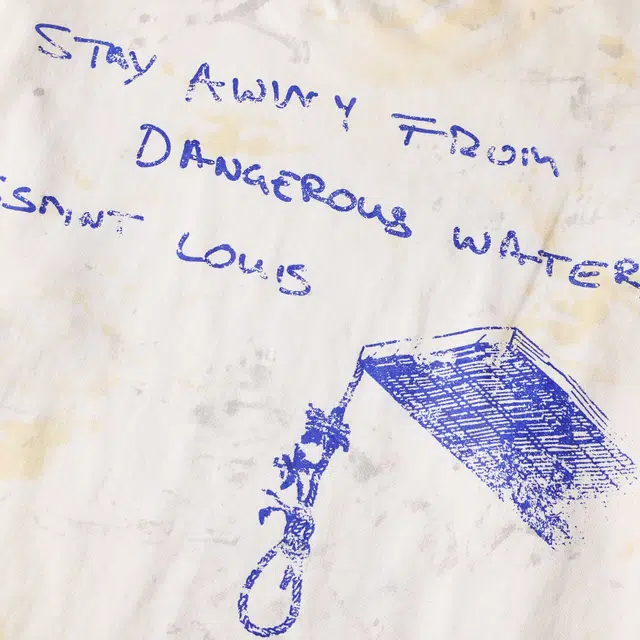 STAY AWAY FROM
DANGEROUS WATER
SSAINT LOUIS